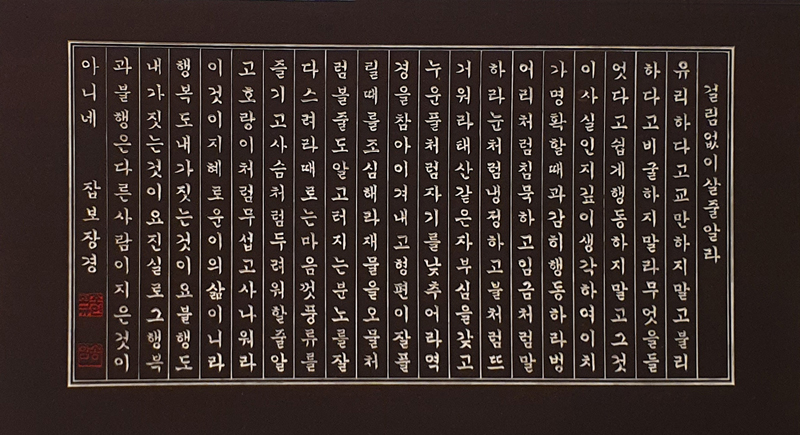 걸림없이살줄알라
유리하다고교만하지말고불리
하다고비굴하지말라무엇을들
엇다고쉽게행동하지말고그것
이사실인지깊이생각하여이치
가명확할때과감히행동하라벙
어리처럼침묵하고임금처럼말
하라눈처럼냉정하고불처럼뜨
거워라태산같은자부심을갖고
누운풀처럼자기를낮추어라역
경을참아이겨내고형편이잘풀
릴때를조심해라재물을오물처
럼볼줄도알고터지는분노를잘
다스려라때로는마음껏풍류를
즐기고사슴처럼두려워할줄알
고호랑이처럼무섭고사나워라
이것이지혜로운이의삶이니라
행복도내가짓는것이요불행도
내가짓는것이요진실로그행복
과불행은다른사람이지은것이
아니네 잡보장경